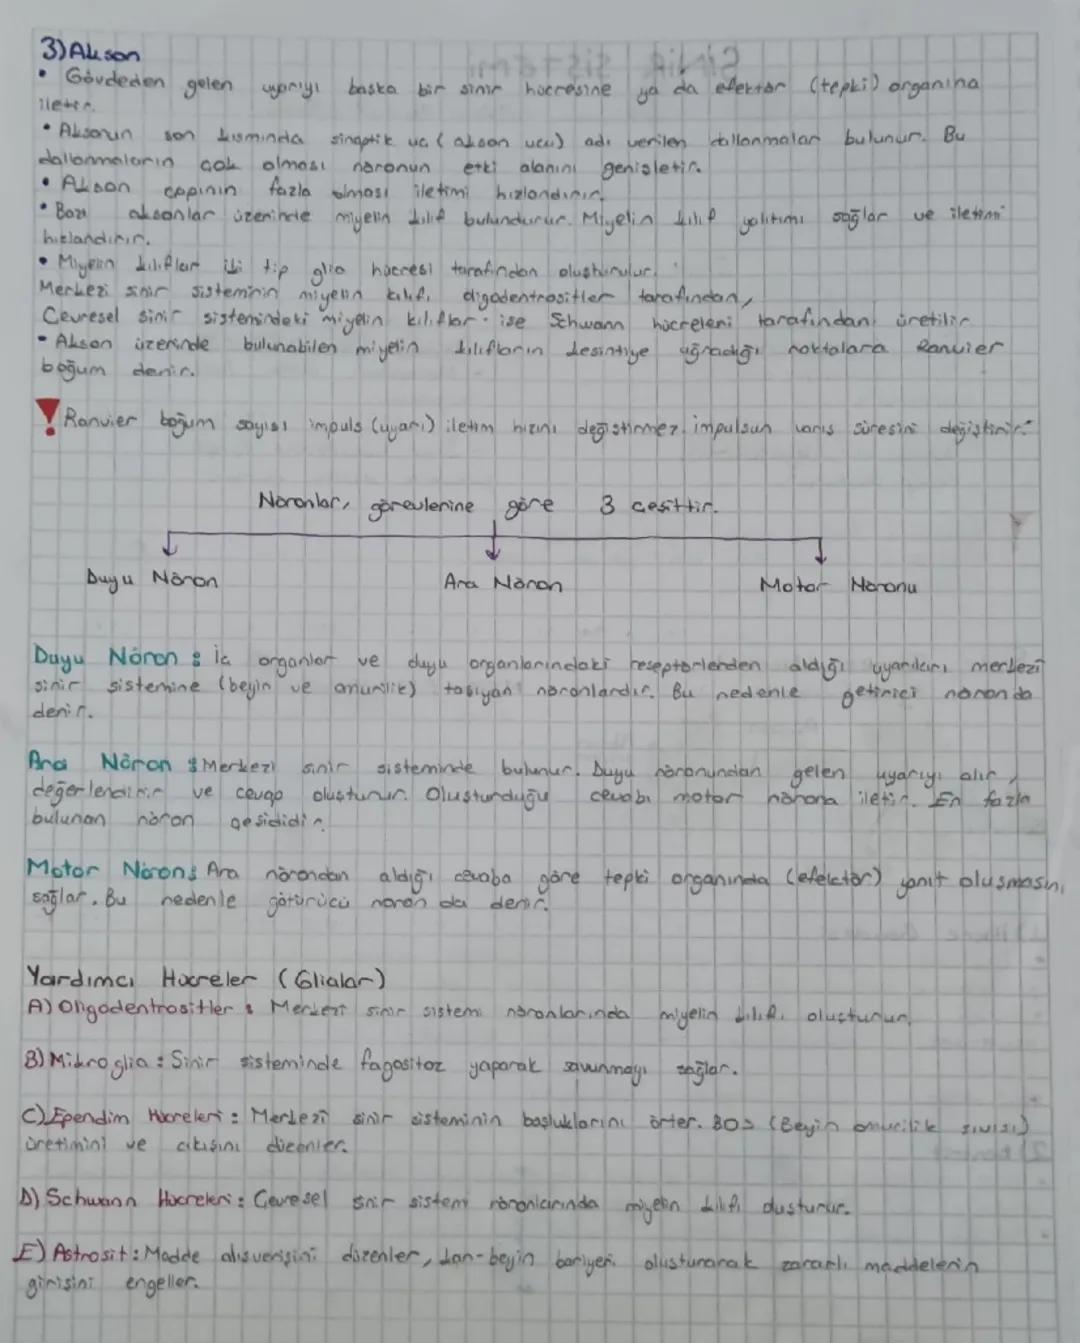 3) Akson
• Gövdeden gelen uyarıyı başka bir sinir hücresine ya da efektör (tepki) organına
iletir.
• Aksonun son kısmında sinaptik uc (akson ucu) adı verilen dallanmalar bulunur. Bu
dallanmaların çok olması nöronun etki alanını genişletir.
• Akson çapının fazla olması iletimi hızlandırır.
• Bazı aksonlar üzerinde miyelin kılıf bulundurur. Miyelin kılıf yalıtımı sağlar ve iletimi
hızlandırır.
• Miyelin kılıfları iki tip glia hücresi tarafından oluşturulur.
Merkezi sinir sisteminin miyelin kılıfı, digodentrositler tarafından,
Çevresel sinir sistemindeki miyelin kılıflar ise Schwann hücreleri tarafından üretilir
• Akson üzerinde bulunabilen miyelin kılıfların kesintiye uğradığı noktalara Ranvier
boğum denir.
! Ranvier boğum sayısı impuls (uyarı) iletim hızını değiştirmez. impulsun varış süresini değiştirir.
Nöronlar, görevlerine göre 3 çeşittir.
Duyu Nöron
Ara Nöron
Motor Nöronu
Duyu Nöron : İç organlar ve duyu organlarındaki reseptörlerden aldığı uyarıları merkezi
sinir sistemine (beyin ve omurilik) taşıyan nöronlardır. Bu nedenle getirici nöron da
denir.
Ara Nöron : Merkezi sinir sisteminde bulunur. Duyu nöronundan gelen uyarıyı alır,
değerlendirir ve cevap oluşturur. Oluşturduğu cevabı motor nörona iletir. En fazla
bulunan nöron çeşididir.
Motor Nöron : Ara nörondan aldığı cevaba göre tepki organında (efektör) yanıt oluşmasını
sağlar. Bu nedenle götürücü nöron da denir.
Yardımcı Hücreler (Glialar)
A) Oligodentrositler : Merkezi sinir sistemi nöronlarında miyelin kılıfı oluşturur.
B) Mikroglia : Sinir sisteminde fagositoz yaparak savunmayı sağlar.
C) Ependim Hücreleri : Merkezi sinir sisteminin boşluklarını örter. BOS (Beyin omurilik sıvısı)
üretimini ve çıkışını düzenler.
D) Schwann Hücreleri : Çevresel sinir sistemi nöronlarında miyelin kılıfı oluşturur.
E) Astrosit : Madde alışverişini düzenler, kan-beyin bariyeri oluşturarak zararlı maddelerin
girişini engeller.